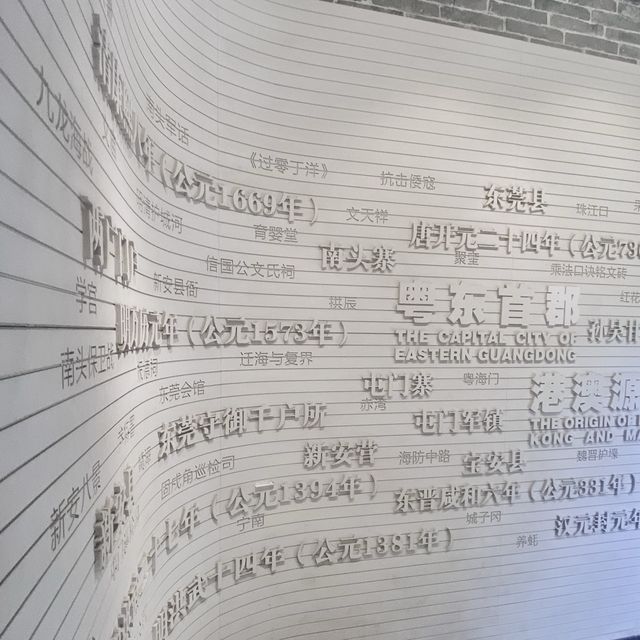 九龙海战
南头军话
年(公元1669年)
《过零丁洋》
抗击倭寇
东莞县
珠江口
文天祥
明清护城河
育婴堂
唐开元二十四年(公元736
聚奎
南头寨
信国公文氏祠
新安县衙
乘法口诀铭文砖
学宫
拱辰
红花
粤东首郡
THE CAPITAL CITY OF
EASTERN GUANGDONG
元年(公元1573年)
南头保卫战
迁海与复界
东莞会馆
屯门寨
粤海门
赤湾
港澳源
THE ORIGIN OF
KONG AND MA
东莞守御千户所
屯门军镇
新安营
海防中路
宝安县
魏晋护壕
新安八景
固戍角巡检司
十七年(公元1394年)
东晋咸和六年(公元331年)
宁南
城子冈
汉元封元年
洪武十四年(公元1381年)
养蚝